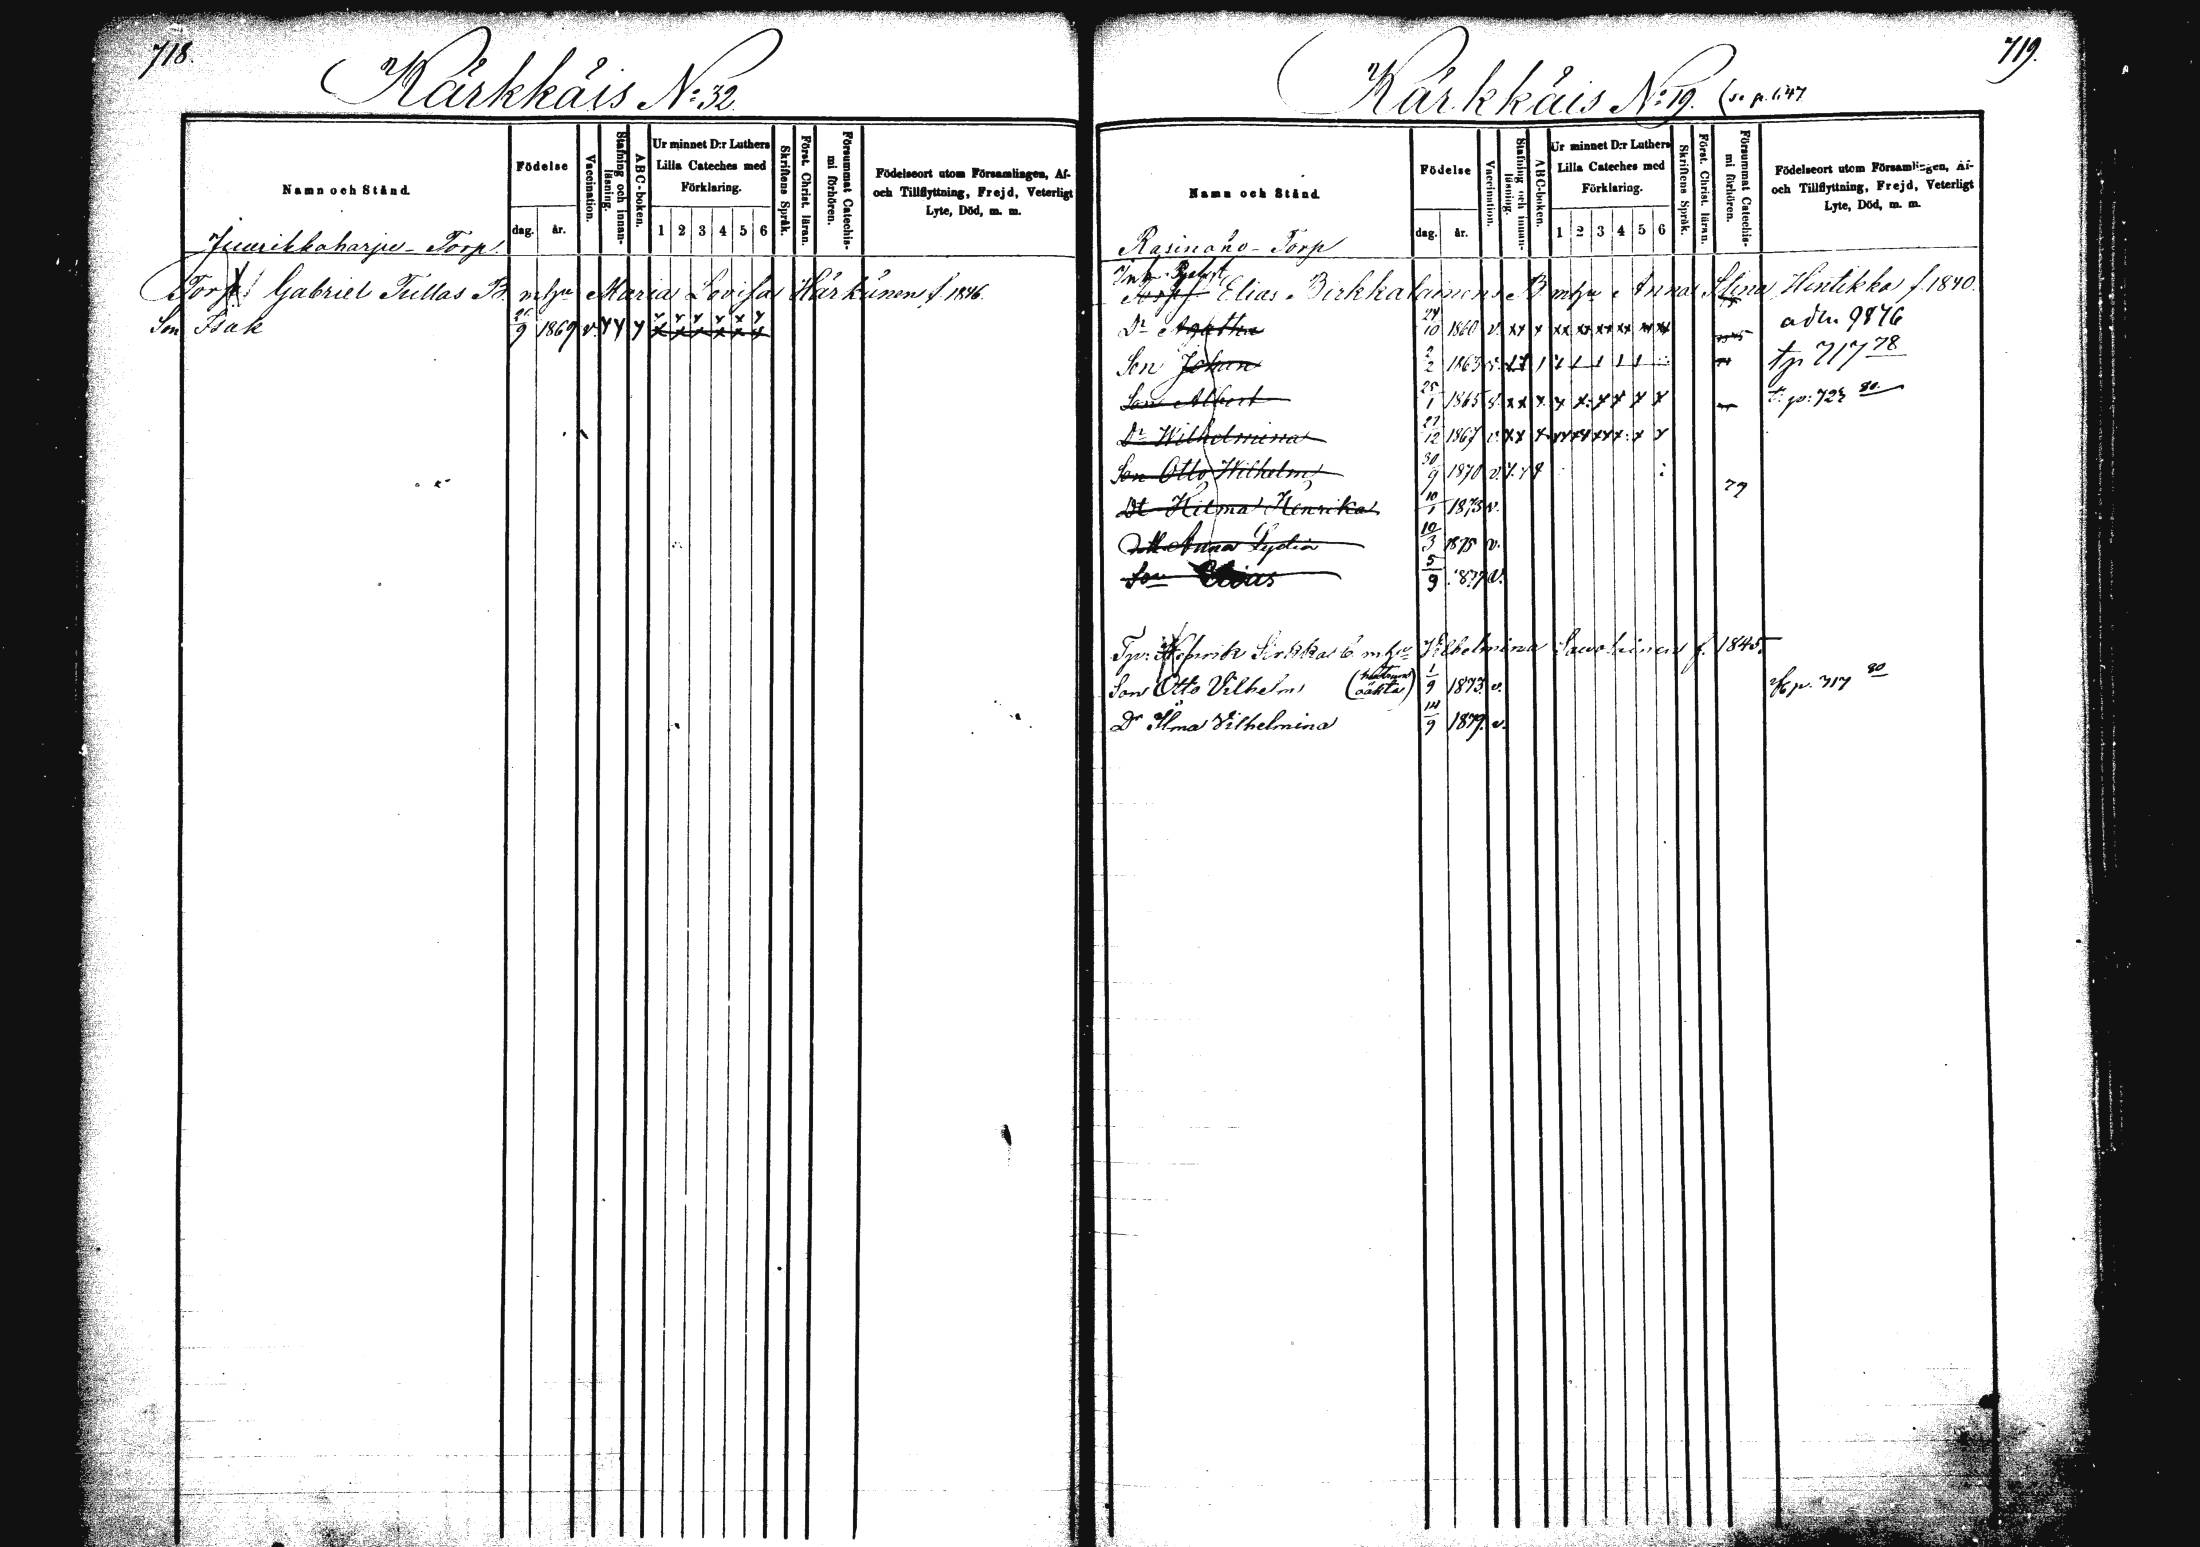 718.
Kärkkäis No 32.
Namn och Stånd.
Födelse
dag.
år.
Vaccination.
Stafning och innan-
läsning.
ABC-boken.
Ur minnet D:r Luthers
Lilla Cateches med
Förklaring.
1 2 3 4 5 6
Skriftens Språk.
Först. Christ. läran.
Försummat Catechis-
mi förhören.
Födelseort utom Församlingen, Af-
och Tillflyttning, Frejd, Veterligt
Lyte, Död, m. m.
Juurikkoharju - Torp.
Torp Gabriel Tullas B. m hu Maria Lovisa Härkönen f. 1846.
Son Isak 9 1869 v.
719.
Kärkkäis No 19. (se p. 647
Namn och Stånd
Födelse
dag.
år.
Vaccination.
Stafning och innan-
läsning.
ABC-boken.
Ur minnet D:r Luthers
Lilla Cateches med
Förklaring.
1 2 3 4 5 6
Skriftens Språk.
Först. Christ. läran.
Försummat Catechis-
mi förhören.
Födelseort utom Församlingen, Af-
och Tillflyttning, Frejd, Veterligt
Lyte, Död, m. m.
Rasinaho - Torp
Inh.
Torp Elias Birkkalainen B m hu Anna Stina Hintikka f. 1840.
Dr Agatha 24/10 1860 v. 9876
Son Johan 2/2 1863 v. tp 717 78
Son Albert 25/1 1865 v. t. p: 723 80.
Dr Wilhelmina 27/12 1867 v.
Son Otto Wilhelm 30/9 1870 v. 79
Dt Hilma Henrika 10/1 1873 v.
Dt Anna Lydia 10/3 1875 v.
Son Elias 5/9 1877 v.
Tp: Henrik Sirkka B m hu Vilhelmina Savolainen f. 1845.
Son Otto Vilhelm (oäkta) 1/9 1873. v. p. 717 80
Dr Ilma Vilhelmina 14/9 1879. v.